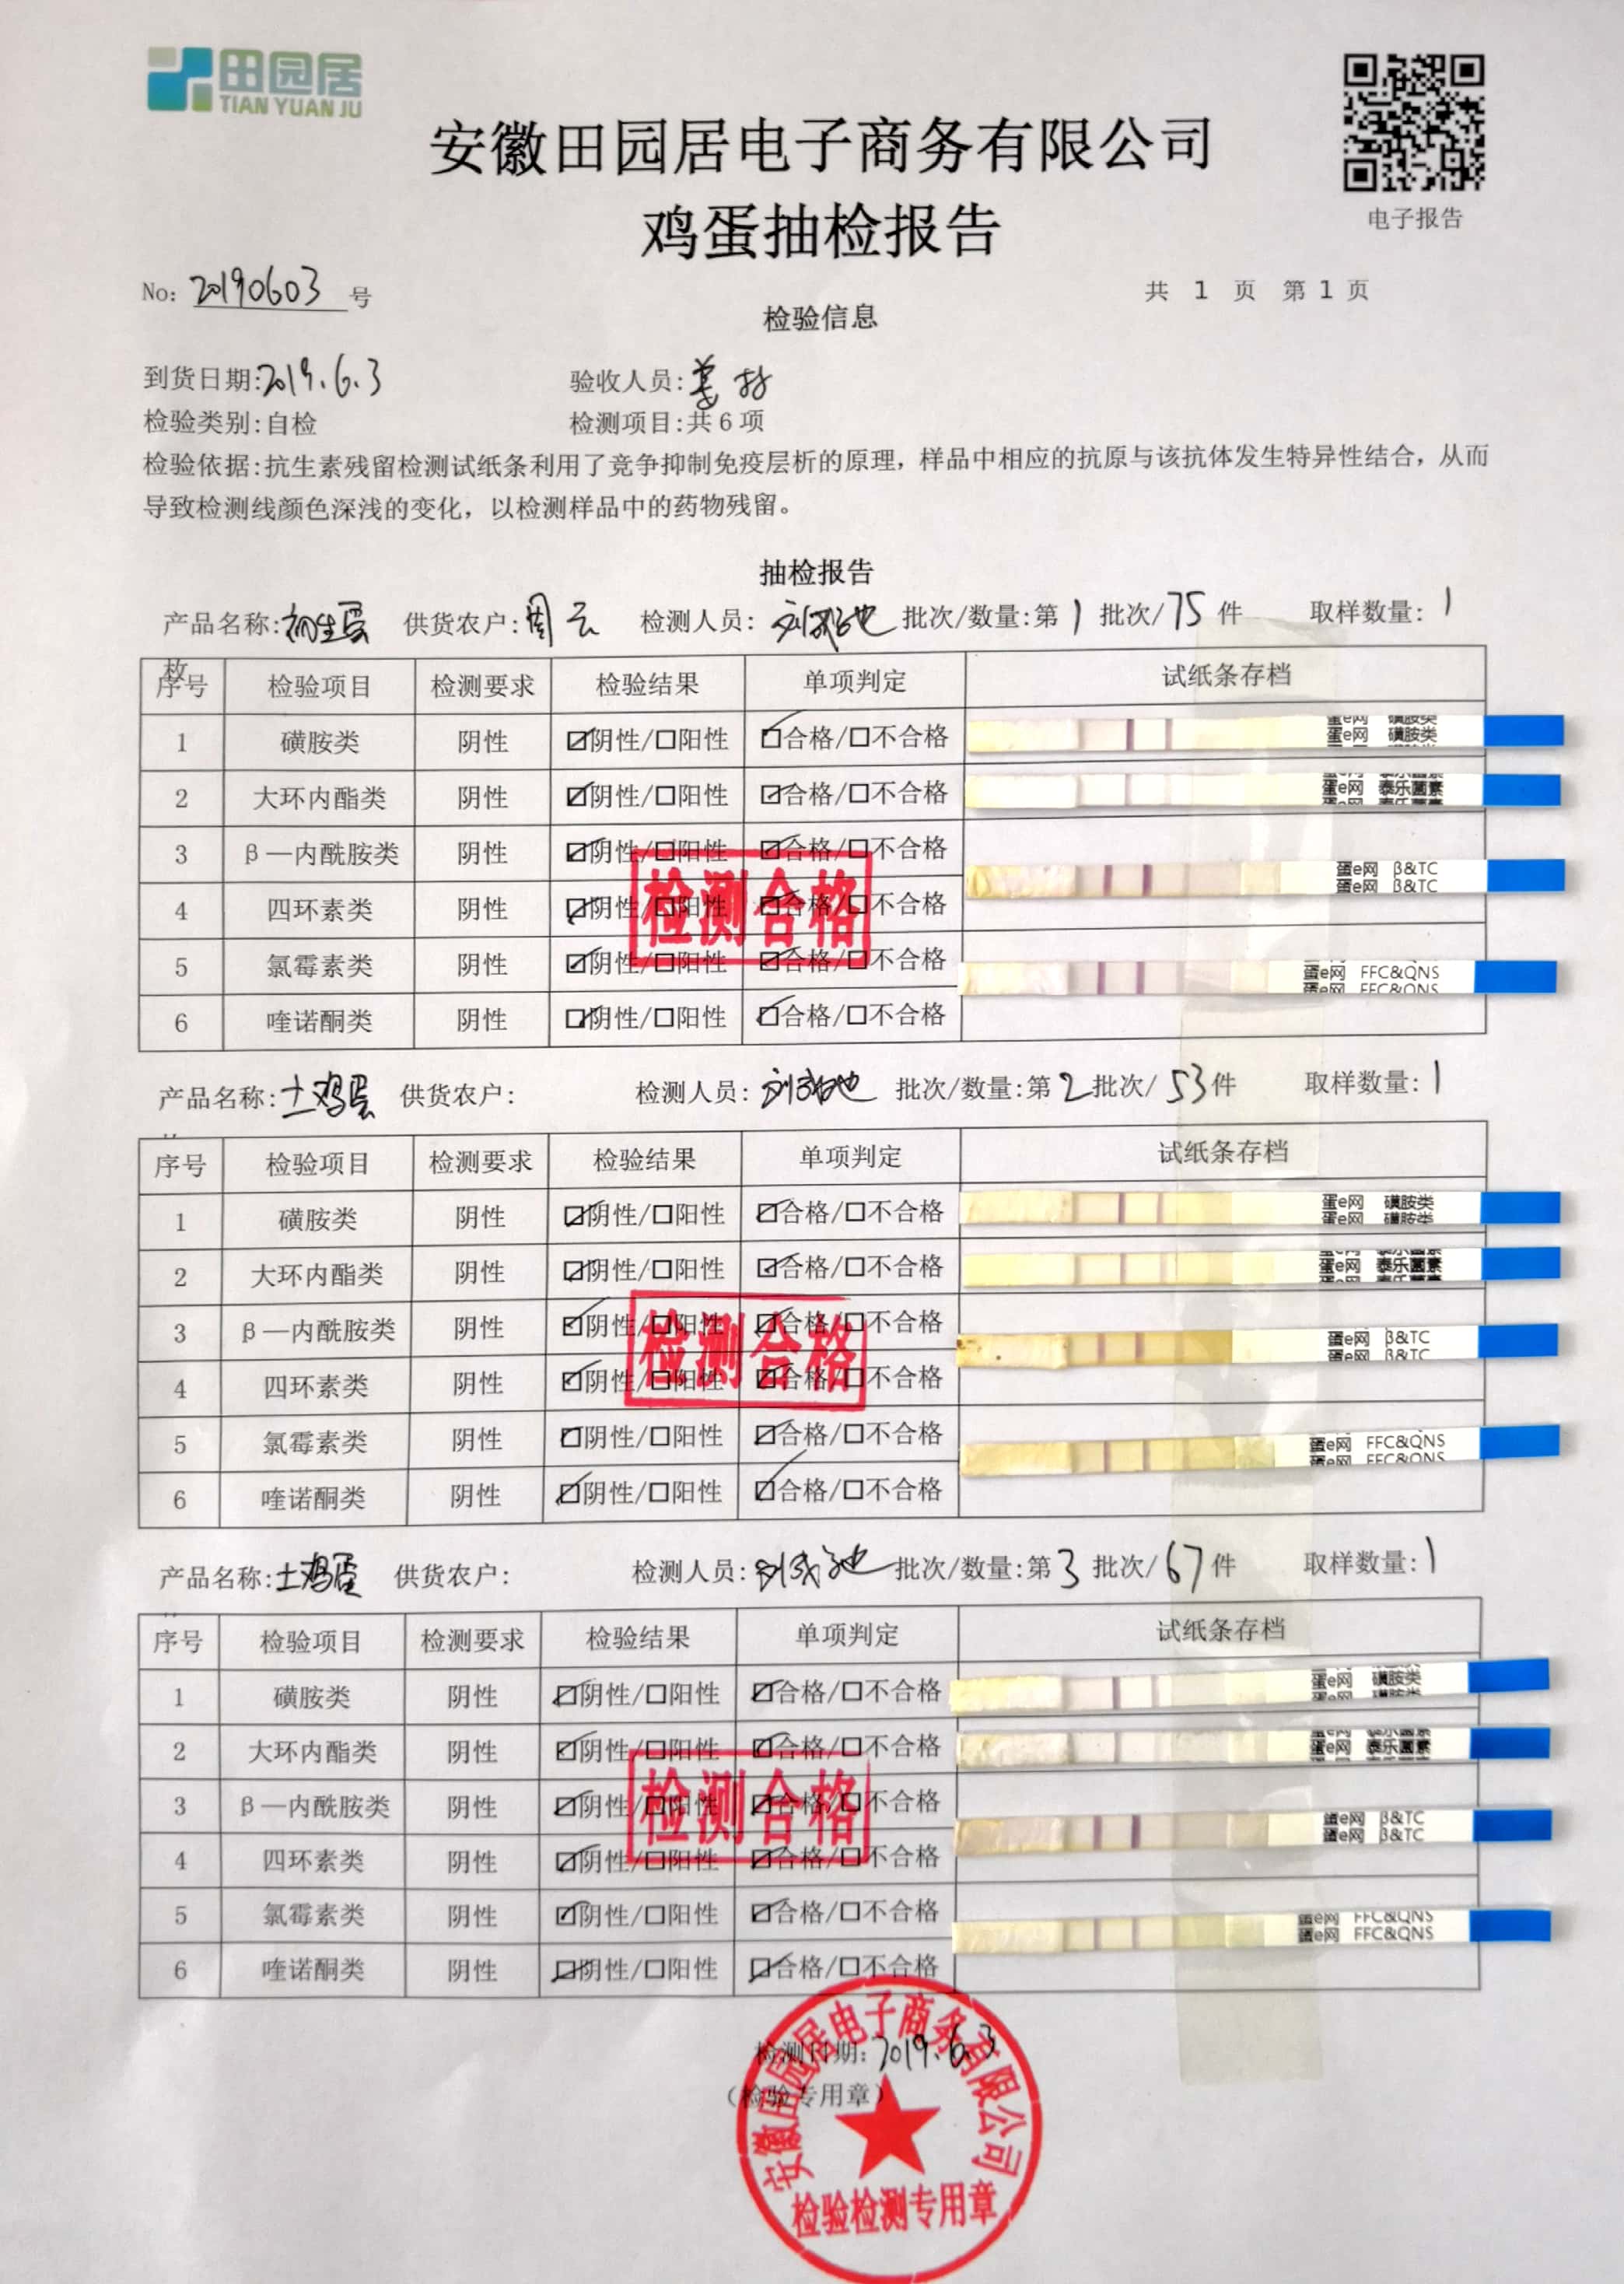 田园居
TIAN YUAN JU
安徽田园居电子商务有限公司
鸡蛋抽检报告
电子报告
No: 20190603 号
共 1 页 第 1 页
检验信息
到货日期:2019.6.3 验收人员:姜
检验类别:自检 检测项目:共 6 项
检验依据:抗生素残留检测试纸条利用了竞争抑制免疫层析的原理，样品中相应的抗原与该抗体发生特异性结合，从而
导致检测线颜色深浅的变化，以检测样品中的药物残留。
抽检报告
产品名称:初生蛋 供货农户:周云 检测人员: 刘 池 批次/数量:第 1 批次/75 件 取样数量: 1
枚
序号 检验项目 检测要求 检验结果 单项判定 试纸条存档
1 磺胺类 阴性 ☑阴性/☐阳性 ☑合格/☐不合格 蛋e网 磺胺类
2 大环内酯类 阴性 ☑阴性/☐阳性 ☑合格/☐不合格 蛋e网 泰乐菌素
3 β—内酰胺类 阴性 ☑阴性/☐阳性 ☑合格/☐不合格 蛋e网 β&TC
蛋e网 β&TC
4 四环素类 阴性 ☑阴性/☐阳性 ☑合格/☐不合格
检测合格
5 氯霉素类 阴性 ☑阴性/☐阳性 ☑合格/☐不合格 蛋e网 FFC&QNS
蛋e网 FFC&QNS
6 喹诺酮类 阴性 ☑阴性/☐阳性 ☑合格/☐不合格
产品名称:土鸡蛋 供货农户: 检测人员: 刘 池 批次/数量:第 2 批次/ 53 件 取样数量: 1
序号 检验项目 检测要求 检验结果 单项判定 试纸条存档
1 磺胺类 阴性 ☑阴性/☐阳性 ☑合格/☐不合格 蛋e网 磺胺类
蛋e网 磺胺类
2 大环内酯类 阴性 ☑阴性/☐阳性 ☑合格/☐不合格 蛋e网 泰乐菌素
3 β—内酰胺类 阴性 ☑阴性/☐阳性 ☑合格/☐不合格 蛋e网 β&TC
蛋e网 β&TC
检测合格
4 四环素类 阴性 ☑阴性/☐阳性 ☑合格/☐不合格
5 氯霉素类 阴性 ☑阴性/☐阳性 ☑合格/☐不合格 蛋e网 FFC&QNS
蛋e网 FFC&QNS
6 喹诺酮类 阴性 ☑阴性/☐阳性 ☑合格/☐不合格
产品名称:土鸡蛋 供货农户: 检测人员: 刘 池 批次/数量:第 3 批次/ 67 件 取样数量: 1
序号 检验项目 检测要求 检验结果 单项判定 试纸条存档
1 磺胺类 阴性 ☑阴性/☐阳性 ☑合格/☐不合格 蛋e网 磺胺类
2 大环内酯类 阴性 ☑阴性/☐阳性 ☑合格/☐不合格 蛋e网 泰乐菌素
3 β—内酰胺类 阴性 ☑阴性/☐阳性 ☑合格/☐不合格 蛋e网 β&TC
蛋e网 β&TC
检测合格
4 四环素类 阴性 ☑阴性/☐阳性 ☑合格/☐不合格
5 氯霉素类 阴性 ☑阴性/☐阳性 ☑合格/☐不合格 蛋e网 FFC&QNS
蛋e网 FFC&QNS
6 喹诺酮类 阴性 ☑阴性/☐阳性 ☑合格/☐不合格
检测日期: 2019.6.3
（检验专用章）
安徽田园居电子商务有限公司
检验检测专用章